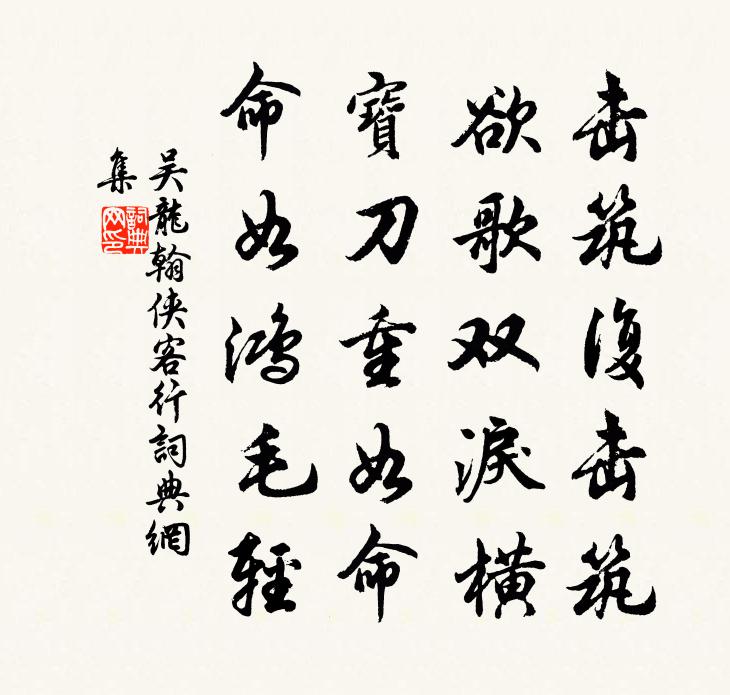 击筑復击筑
欲歌双淚橫
寶刀重如命
命如鴻毛輕
吴龍翰侠客行詞典網
集
詞典
网印